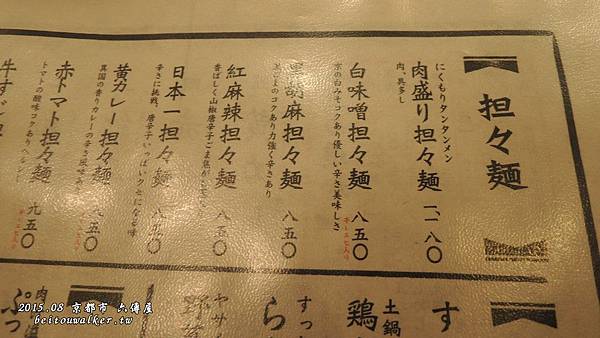 担々麺
にくもりタンタンメン
肉盛り担々麺 一、一八〇
肉、異多し
白味噌担々麺 八五〇
京の白みそコクあり優しい辛さ美味しさ
黒胡麻担々麺 八五〇
コクあり力強く辛さあり
紅麻辣担々麺 八五〇
香ばしく山椒唐辛子ごま焦が
日本一担々麺 八五〇
辛さに挑戦、唐辛子いっぱいクセになる味
黄カレー担々麺 八五〇
異国の香りカレーの辛さ風味あ
赤トマト担々麺 九五〇
トマトの酸味コクありヘルシー
牛すじ
す
土鍋
鶏
すっ
ら
ヤサイ
野菜
肉
ぷっ
2015.08 京都市 六傳屋
beitouwalker.tw